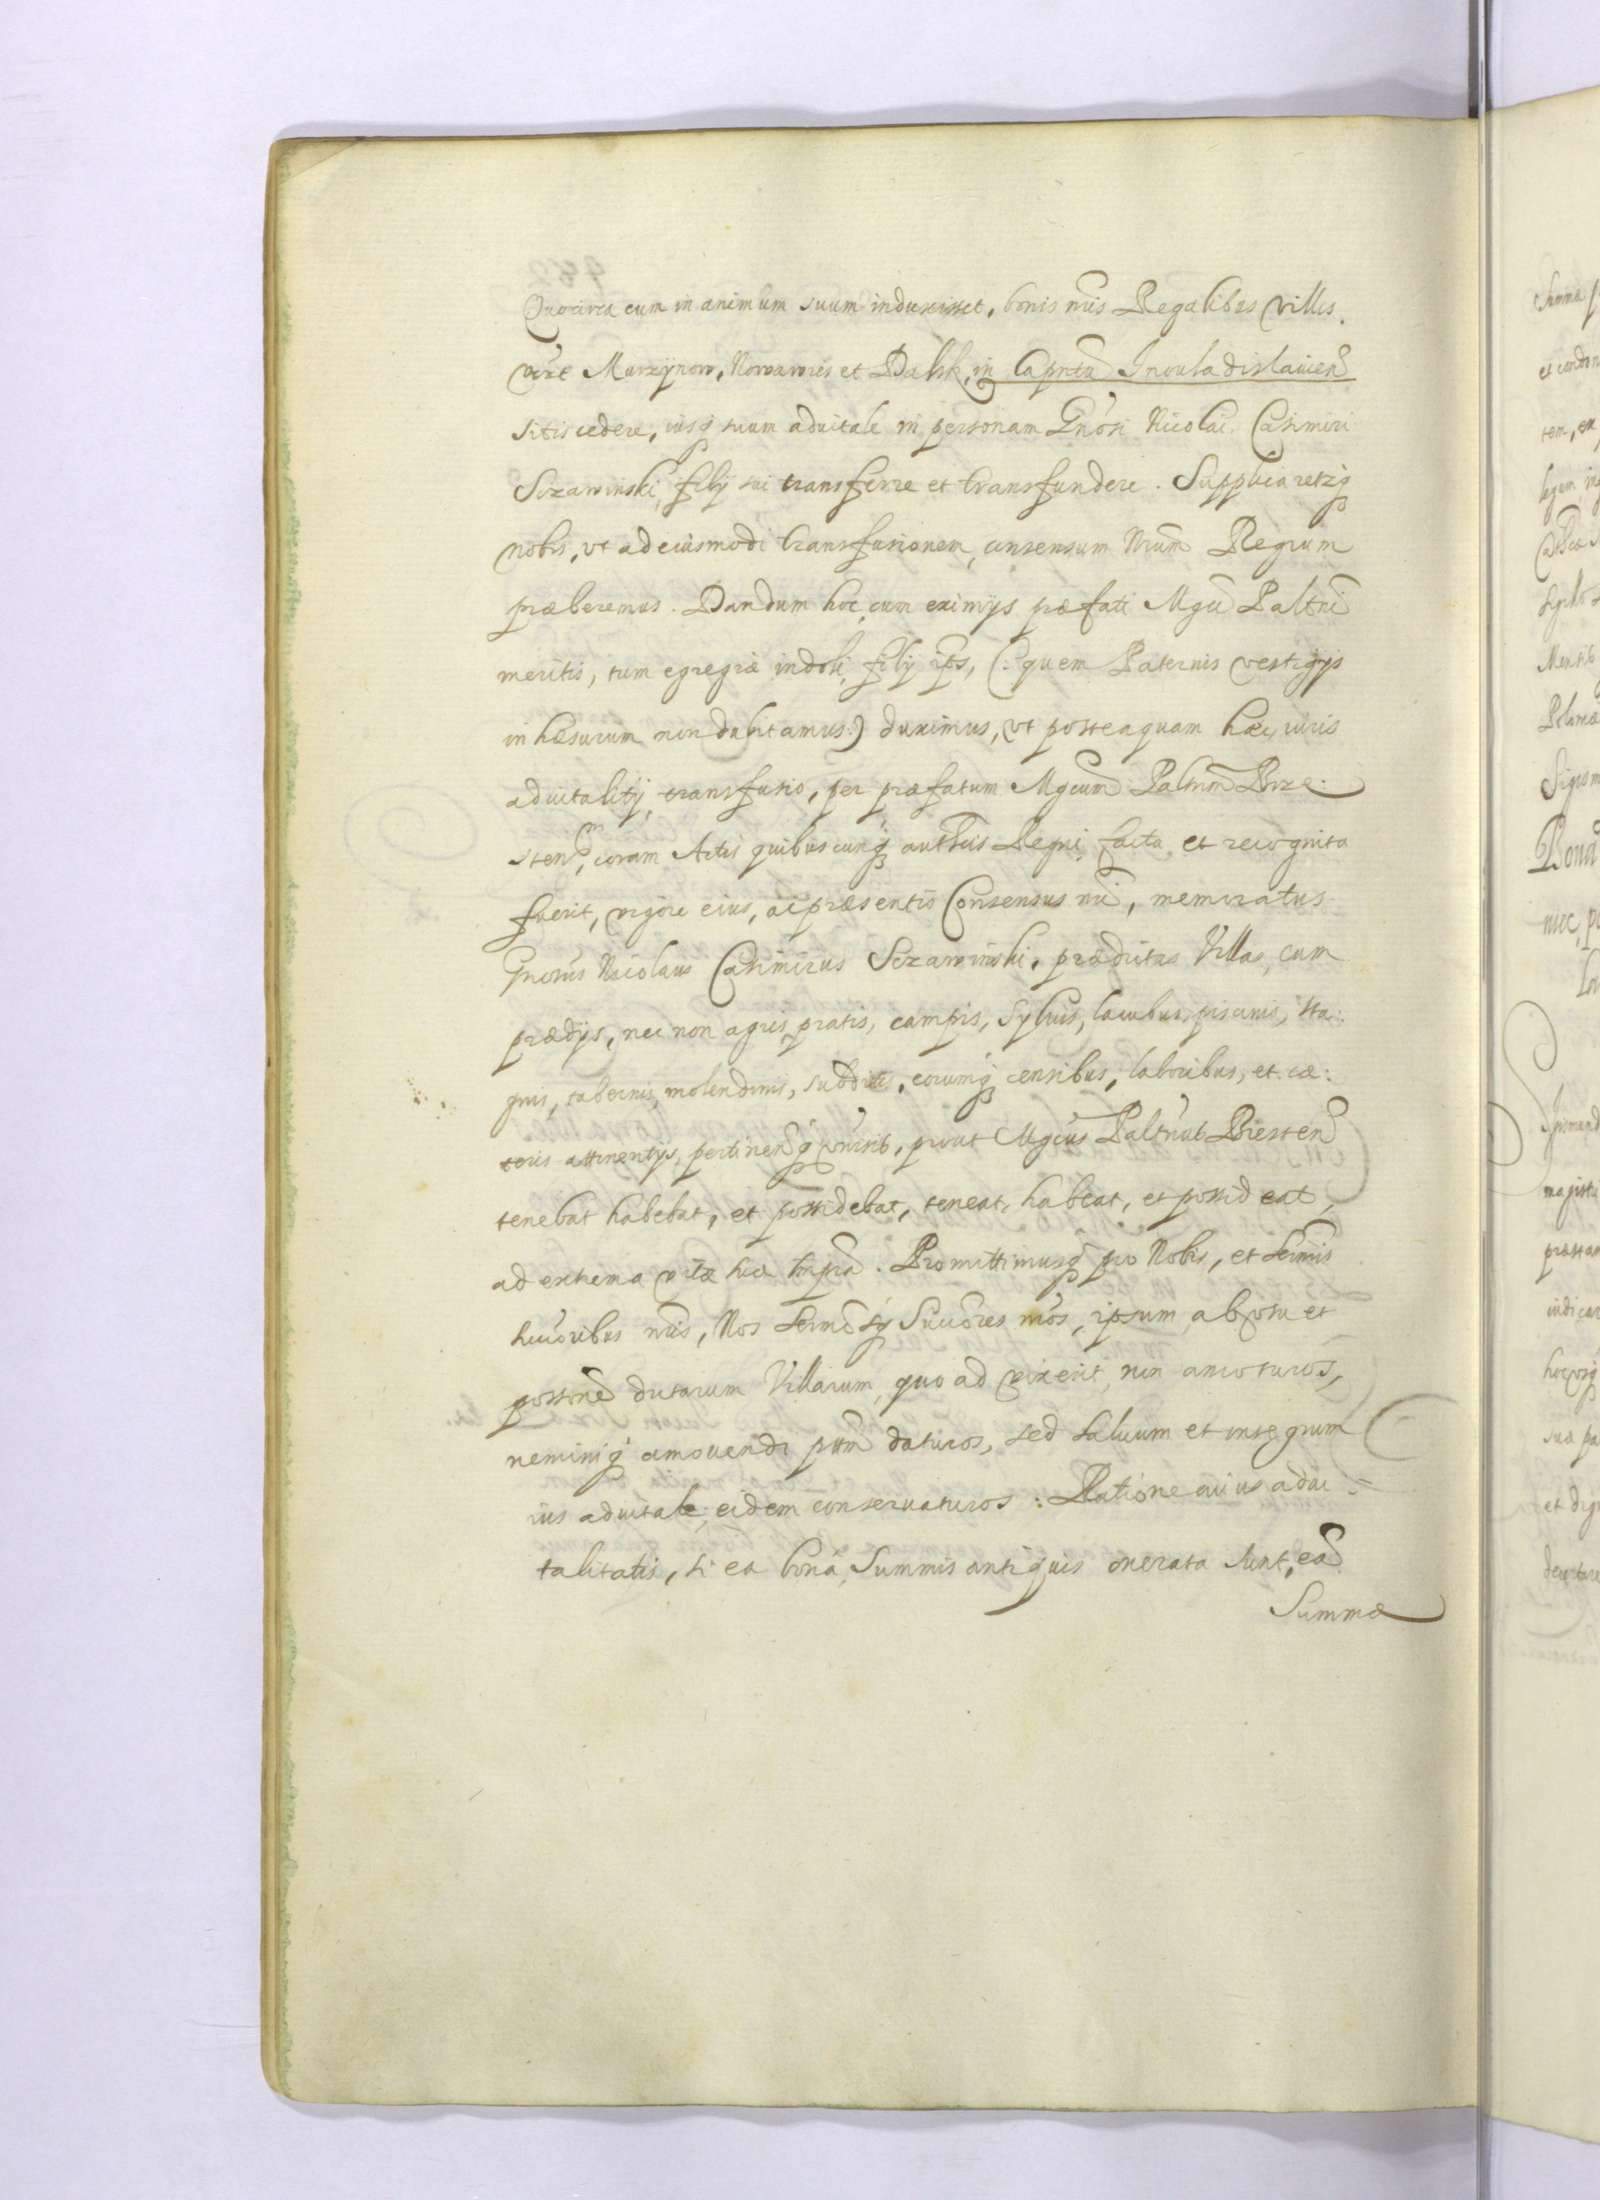 Quocirca cum in animum suum induxisset, bonis nris Regalibus villis
vizt Marzynow, Nowawies et Dalsk, in Capntu Inouladislauien
sitis cedere, iusq suum aduitale in personam Gnosi Nicolai Casimiri
Szczawinski, filij sui transferre et transfundere. Supplicaretq
nobis, vt ad eiusmodi transfusionem, consensum Nrum Regium
præberemus. Dandum hoc, cum eximijs præfati Mgci Paltni
meritis, tum egregiæ indoli filij ips, (: quem Paternis vestigijs
inhæsurum non dubitamus :) duximus, vt posteaquam hæc iuris
aduitalitij transfusio, per præfatum Mgcum Paltnum Brze:
sten, coram Actis quibuscunq authcis Regni facta et recognita
fuerit, vigore eius, ac præsentis Consensus nri, memoratus
Gnosus Nicolaus Casimirus Szczawinski, prædictas Villas, cum
prædijs, nec non agris, pratis, campis, syluis, lacubus, piscinis, sta:
gnis, tabernis, molendinis, subditis, eorumq censibus, laboribus, et cæ:
teris attinentijs, pertinenq vnisis, prout Mgcus Paltnus Bresten
tenebat habebat, et possidebat, teneat, habeat, et possideat,
ad extrema vitæ suæ tmpra. Promittimusq pro Nobis, et Sermis
succoribus nris, Nos Sermosq Succores nros, ipsum ab vsu et
possone dictarum Villarum, quo ad vixerit, non amoturos,
neminiq amouendi pttm daturos, sed saluum et integrum
ius aduitale, eidem conseruaturos: Ratione cuius adui
talitatis, si ea bona, Summis antiquis onerata sunt, eæ
Summæ